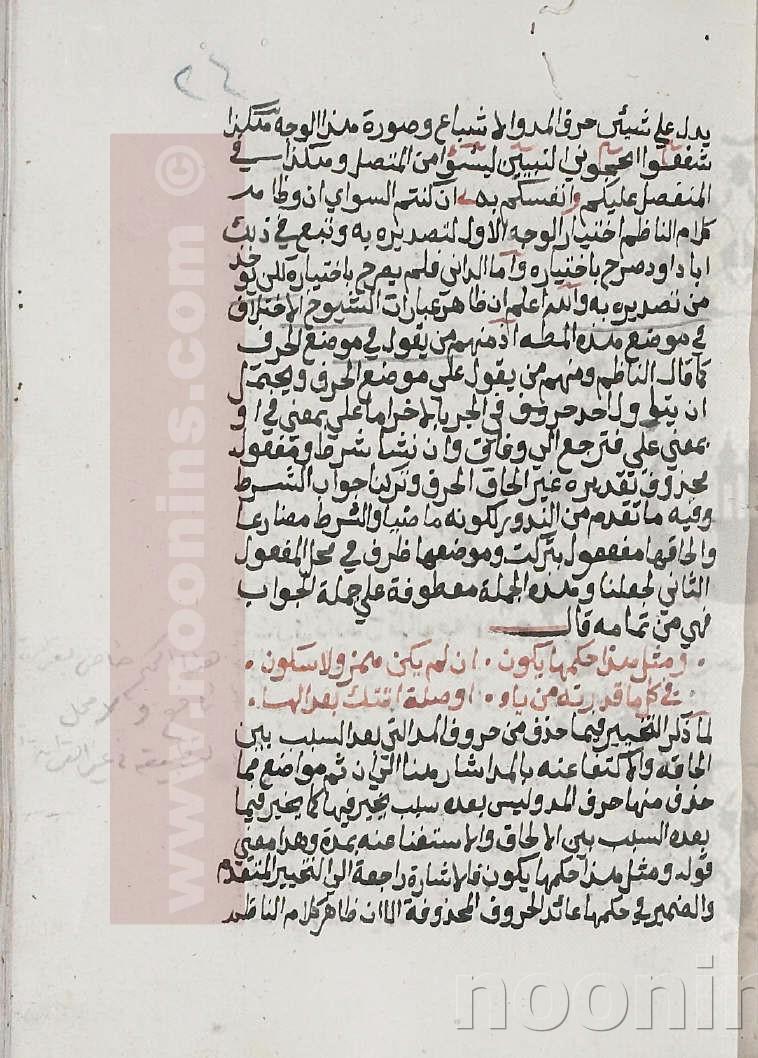 ٢٤
يدل على شيئين حرف المد والاشباع وصورة هذا الوجه هكذا
شفعوا تحجوني النبيين ليسوا من المتصل وهكذا في
المنفصل عليكم وانفسكم به ان كنتم السواي ان وظاهر
كلام الناظم اختيار الوجه الاول لتصديره به وتبع في ذلك
ابا داود صرح باختياره واما الداني فلم يصرح باختياره لكن يوخذ
من تصديره به والله اعلم ان ظاهر عبارات الشيوخ الاختلاف
في موضع هذه المطه اذ منهم من يقول في موضع الحرف
كما قال الناظم ومنهم من يقول على موضع الحرف ويحتمل
ان يتول احد حروف الجر بالاخر اما على بمعنى في او
بمعنى على فترجع الى وفاق وان نشا شرط ومفعوله
محذوف تقديره غير الحاق الحرف وتركنا جواب الشرط
وفيه ما تقدم من الندور لكونه ماضيا والشرط مضارعا
والحاقها مفعول بتركت وموضعها ظرف في محل المفعول
الثاني لجعلنا وهذه الجملة معطوفة على جملة الجواب
فهي من تمامه قال
ومثل هذا حكمها يكون • ان لم يكن همز ولا سكون •
في كل ما قد زدته من ياء • او صلة اتتك بعد الهاء •
لما ذكر التخيير فيما حذف من حروف المد التي بعد السبب بين
الحاقه والاكتفا عنه بالمد اشار هنا الى ان ثم مواضع مما
حذف منها حرف المد وليس بعده سبب يخير فيها كما يخير فيما
بعده السبب بين الالحاق والاستغنا عنه بمدة وهذا معنى
قوله ومثل هذا حكمها يكون فالاشارة راجعة الى التخيير المتقدم
والضمير في حكمها عائد الحروف المحذوفة الا ان ظاهر كلام الناظم
www.noonins.com ©
noonin